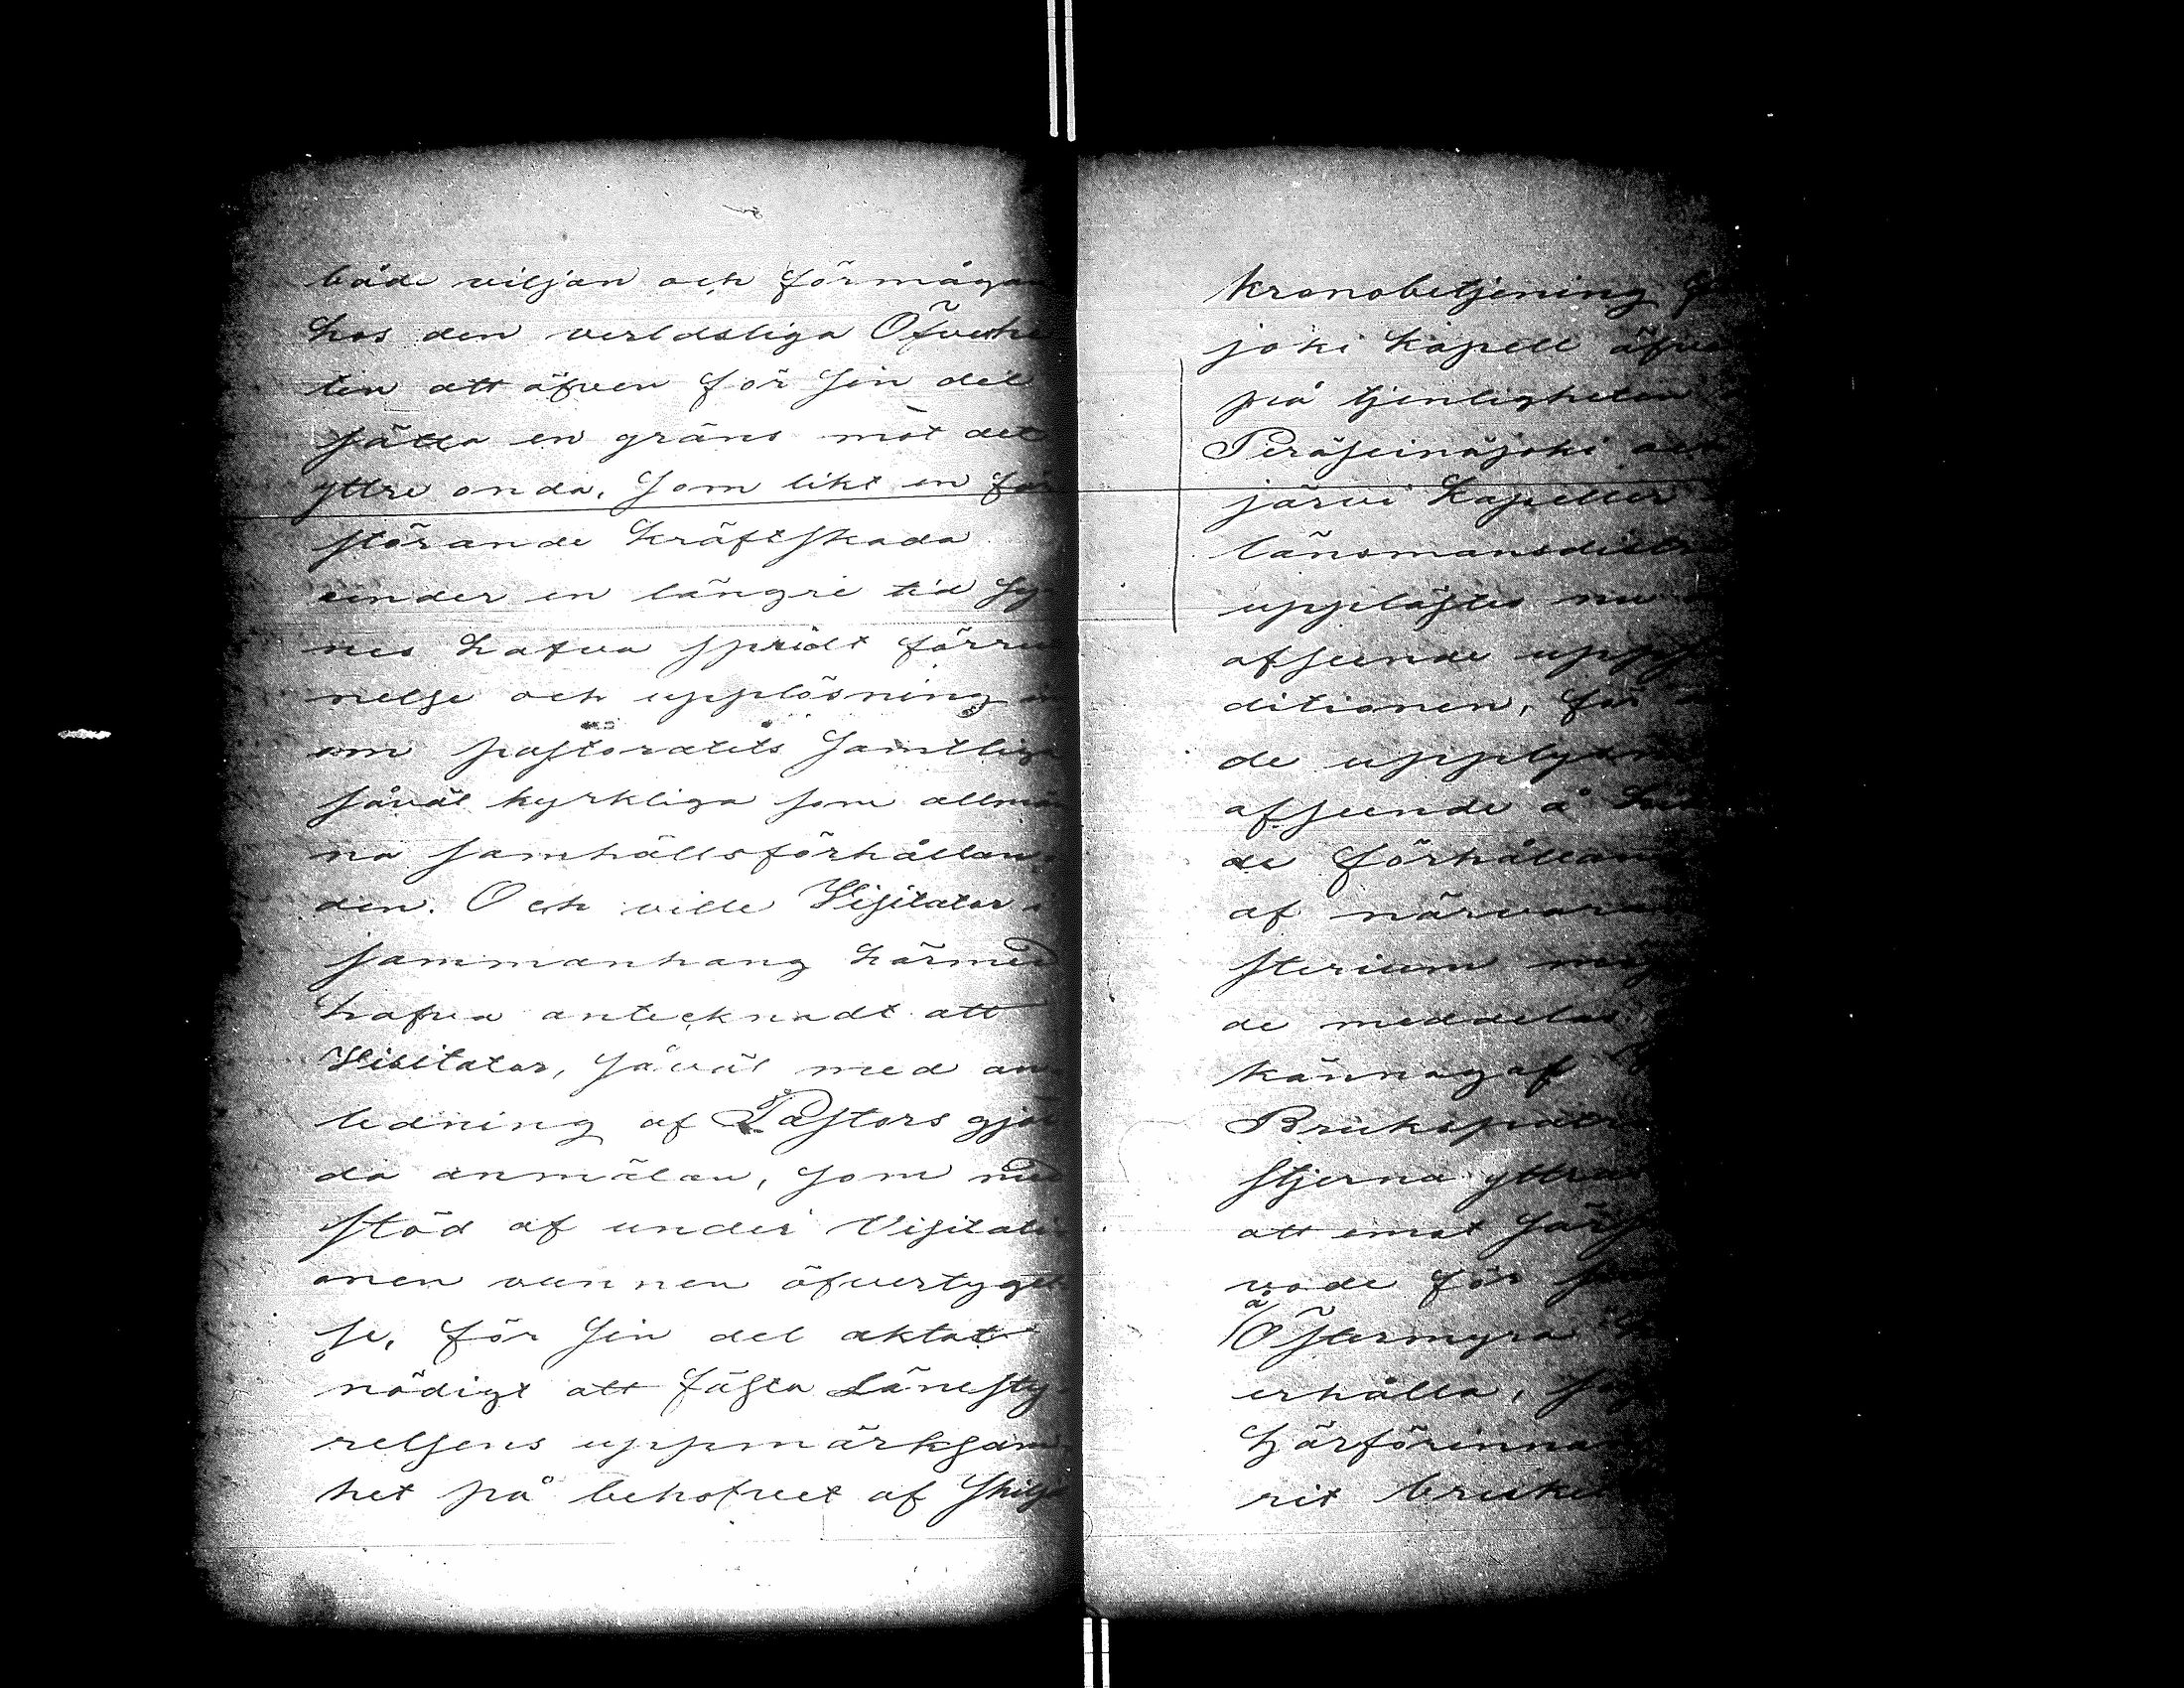 både viljan och förmågan
hos den verldsliga Öfverhe
ten att äfven för sin del
sätta en gräns mot det
yttre onda, som likt en för
störande kräftskada
under en längre tid sy-
nes hafva spridt förrut
nelse och upplösning
om pastoratets samtliga
såväl kyrkliga som allmän
na samhällsförhållan-
den. Och ville Visitator i
sammanhang härmed
hafva antecknadt att
Visitator, såväl med an-
ledning af Pastors gjor
da anmälan, som med
stöd af under Visitati
onen vunnen öfvertygel
se, för sin del aktat
nödigt att fästa Länesty-
relsens uppmärksam-
het på behofvet af skilje
kronobetjening
joki kapell äfve
på tjenligheten
Peräseinäjoki och
järvi kapeller
länsmansdistr
upplästes nu
afseende upps
ditionen, för
de upplysn
afseende å
de förhållan
af närvaran
sterium
de meddelas
kännag af
Brukspatr
stjerna yttra
att emot särs
vode för
å Östermyra
erhålla, 
härförinnan
rit bruket